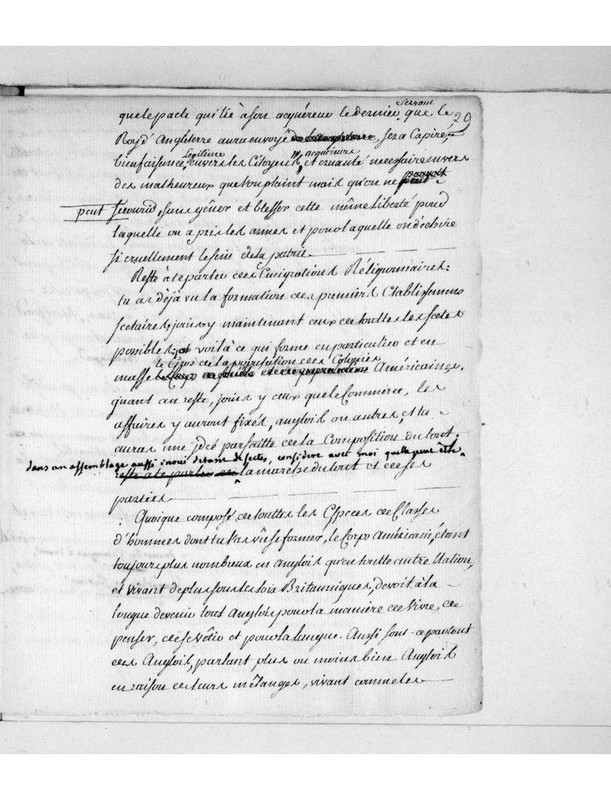 29
servant
que le pacte qui lie à son acquéreur le dernier que le
Roy d'Angleterre aura envoyé sera Capire,
légitime acquéreurs
bienfaisance, envers les Citoyens, et cruauté necessaire envers
des malheureux que l'on plaint mais qu'on ne pouvoit
peut secourir sans gêner et blesser cette même liberté pour
laquelle on a pris les armes et pour laquelle on déchire
si cruellement le sein de la patrie.
Reste à te parler des Emigrations Réligionnaires:
tu as déjà vu la formation des premiers Etablissemens
sectaires, joins y maintenant ceux de touttes les sectes
possibles, voilà ce qui forme en particulier et en
le Gros de la population des Colonies
masse Américaines,
quant au reste, joins y ceux que le Commerce, les
affaires y auront fixés, anglois ou autres, et tu
auras une idée parfaitte de la Composition du tout,
dans un assemblage aussi inoui de tant de sectes, considere avec moi quelle peut être
reste à te parler de la marche du tout et de ses
parties
Quoique composé de touttes les Especes de Classes
d'hommes dont tu as vu se former, le Corps Américain, étant
toujours plus nombreux en Anglois qu'en toutte autre Nation,
et vivant de plus sous les loix Britanniques, devoit à la
longue devenir tout Anglois pour la manière de vivre, de
penser, de se vêtir et pour la langue. Aussi sont-ce partout
des Anglois, parlant plus ou moins bien Anglois
en raison de leurs mélanges, vivant comme les